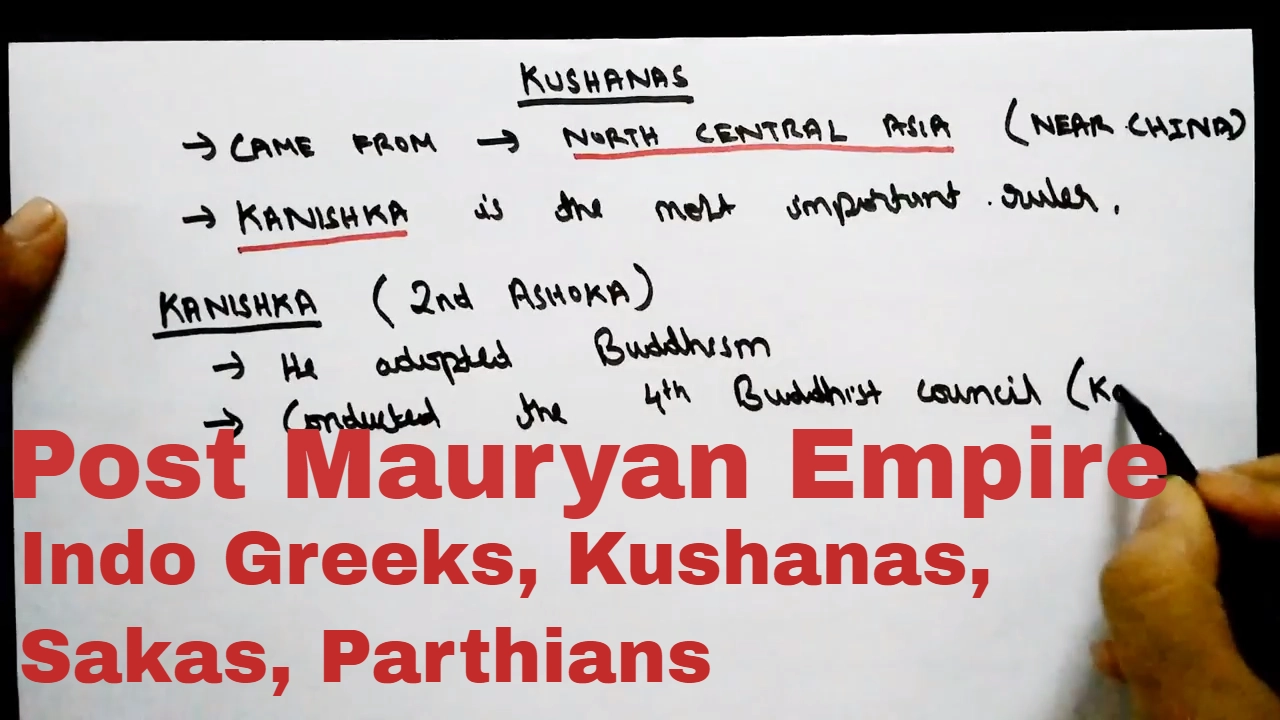 KUSHANAS
→ CAME FROM → NORTH CENTRAL ASIA (NEAR CHINA)
→ KANISHKA is the most important ruler.
KANISHKA (2nd ASHOKA)
→ He adopted Buddhism
→ Conducted the 4th Buddhist council (Ka
Post Mauryan Empire
Indo Greeks, Kushanas,
Sakas, Parthians